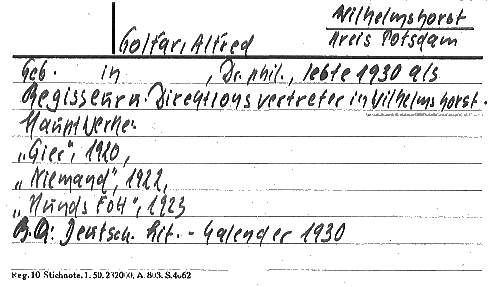 Wilhelmshorst
Kreis Potsdam
Golfar, Alfred
Geb. in , Dr. phil., lebte 1930 als
Regisseur u. Direktionsvertreter in Wilhelmshorst.
Hauptwerke:
„Gier", 1920,
„Niemand", 1922,
„Hundsfott", 1923
B.Q: Deutsch. Lit. - Kalender 1930
Reg. 10 Stichnote. 1. 50. 232000. A. 803. S.4062